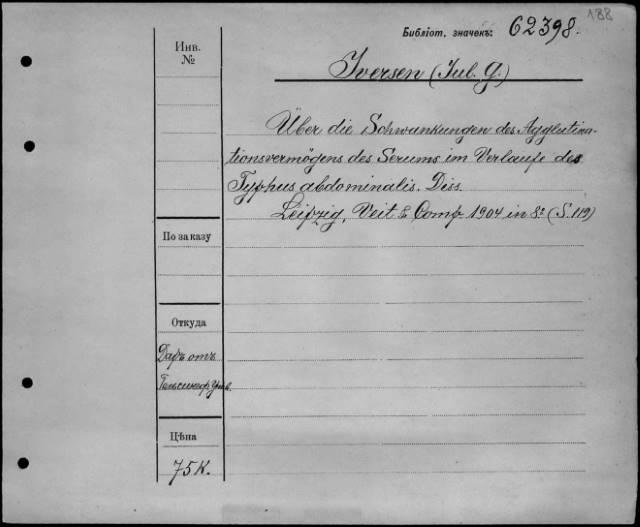 188
Библіот. значекъ: 62398.
Инв.
№
Iversen (Jul. G.)
Über die Schwankungen des Agglutina-
tionsvermögens des Serums im Verlaufe des
Typhus abdominalis. Diss.
Leipzig, Veit & Comp 1904 in 8º (S. 119)
По заказу
Откуда
Даръ отъ
Гельсингф. Унив.
Цѣна
75 К.